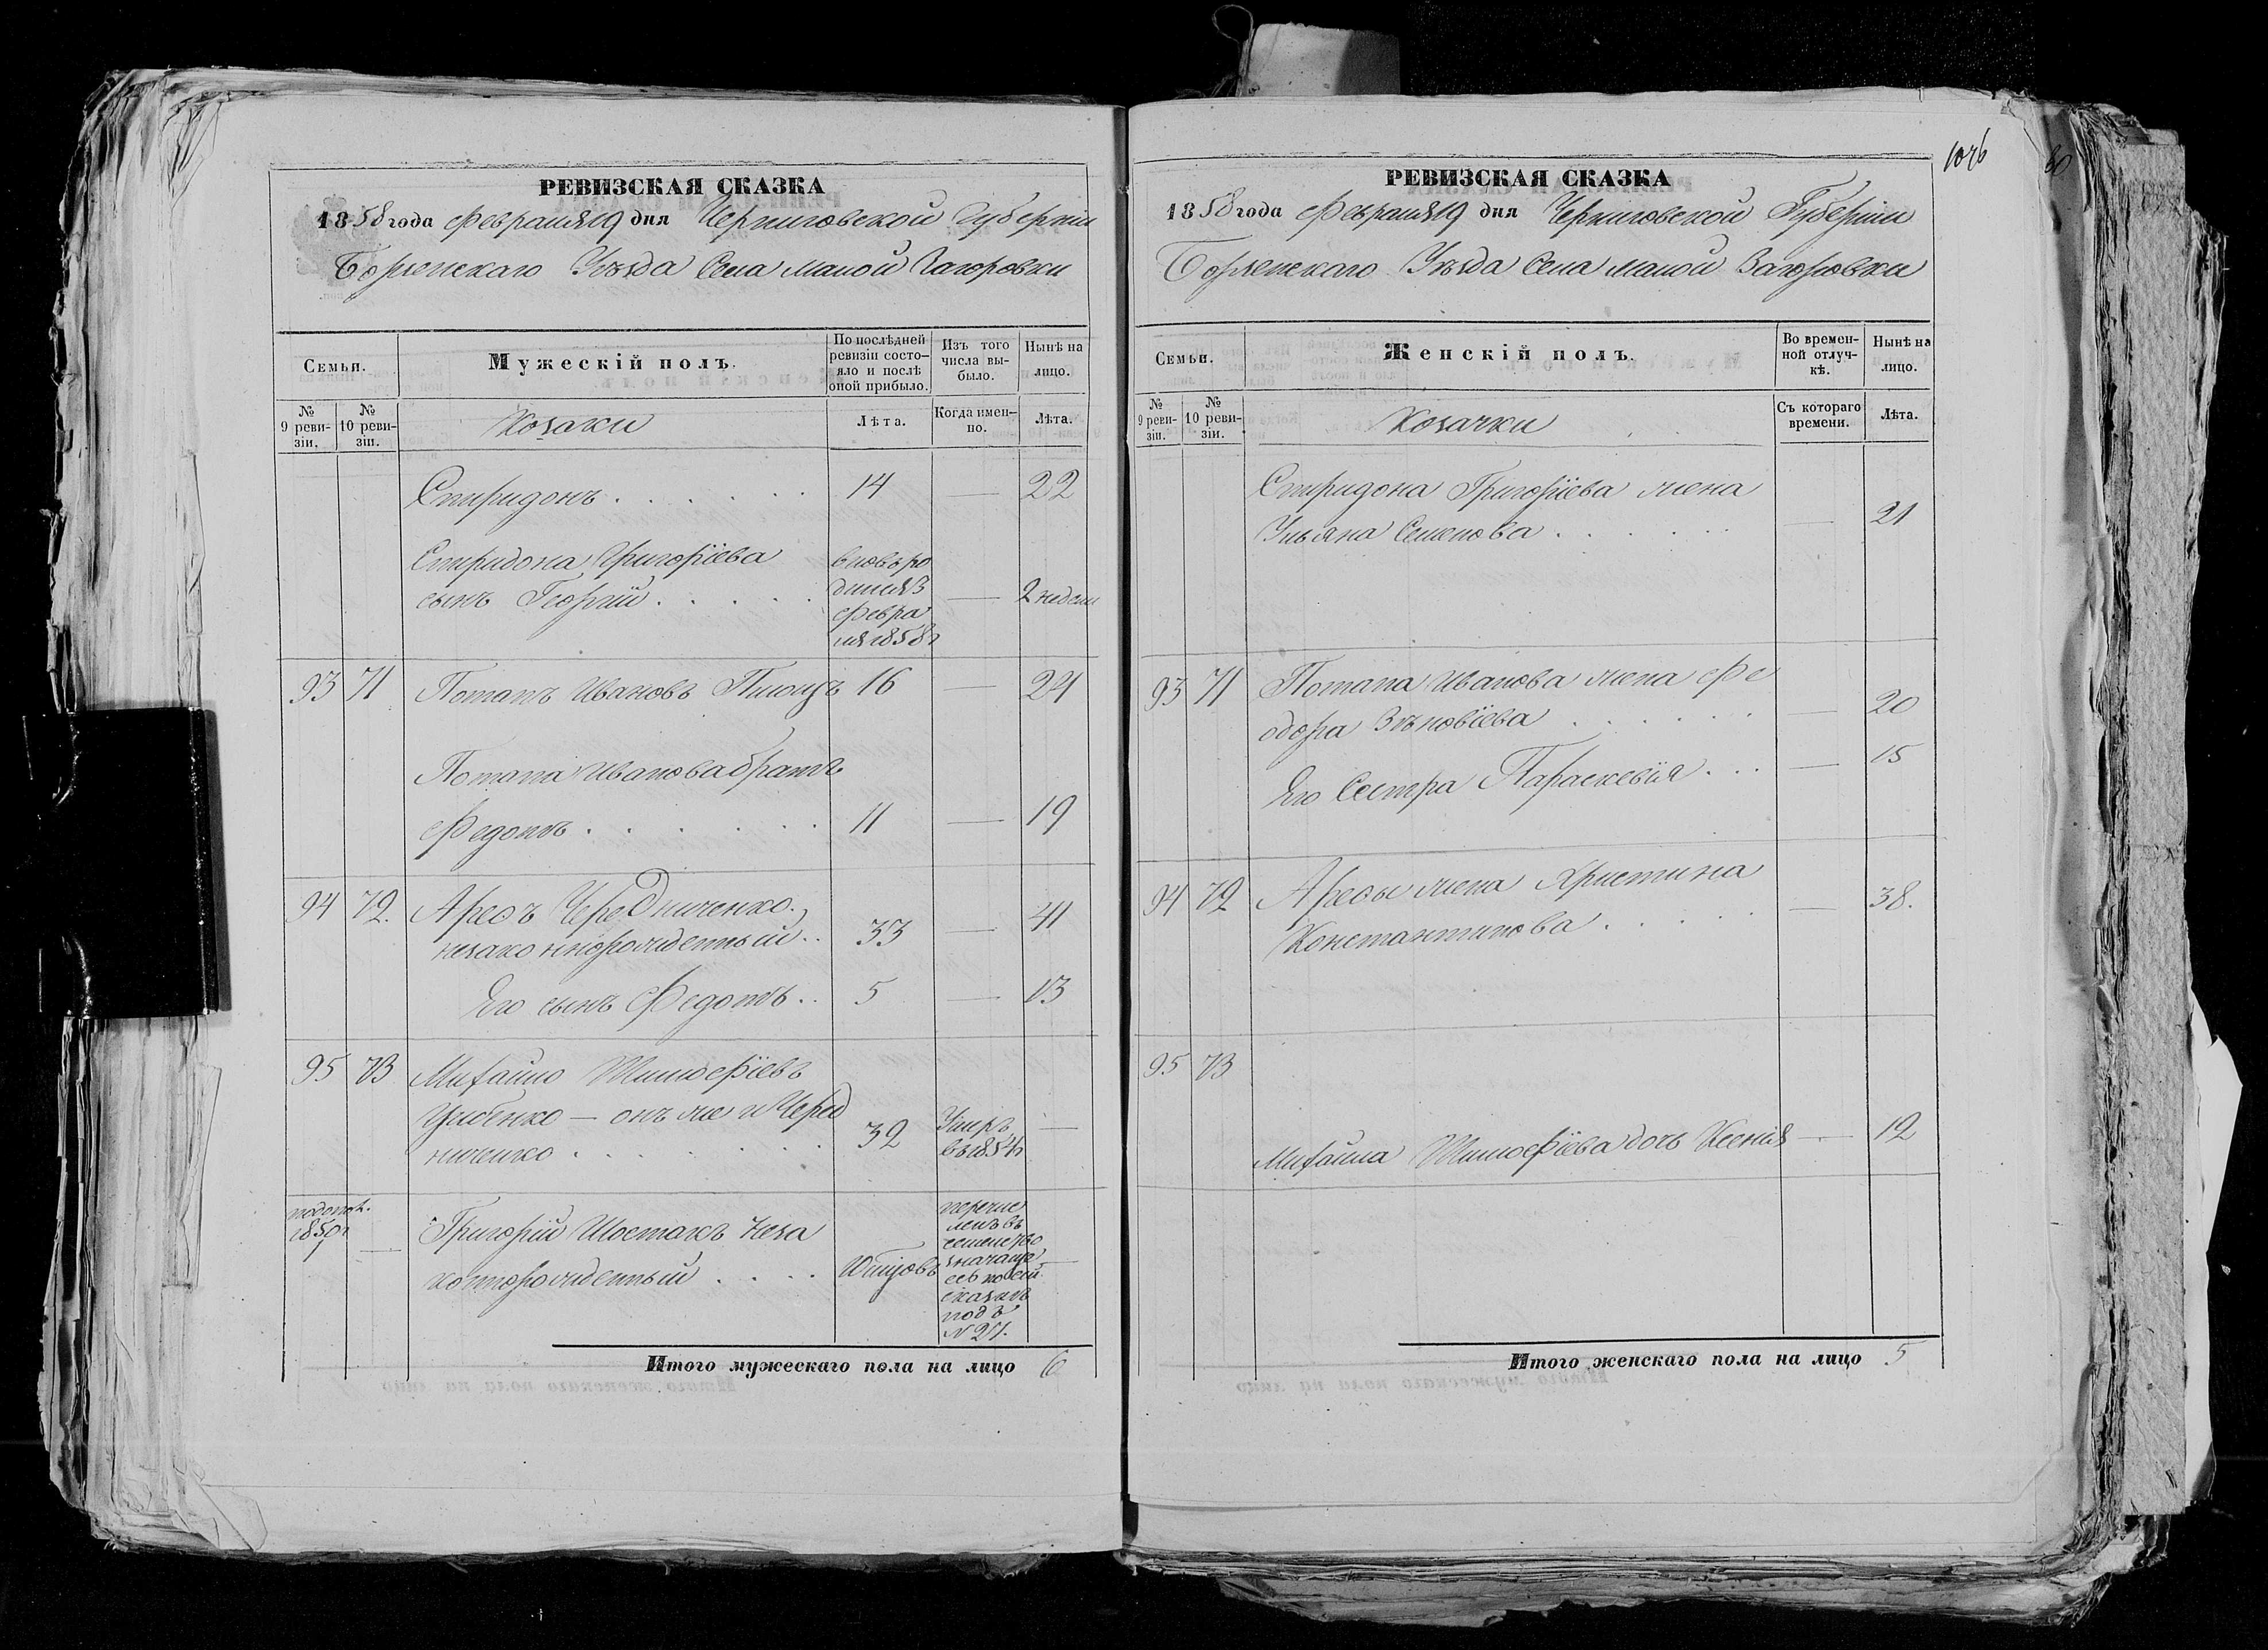 РЕВИЗСКАЯ СКАЗКА
1858 года февраля 19 дня Черниговской Губерніи
Борзенскаго Уѣзда Села Малой Загоровки
Семьи.
Мужескій полъ.
По послѣдней ревизіи состояло и послѣ оной прибыло.
Изъ того числа выбыло.
Нынѣ на лицо.
№ 9 ревизіи.
№ 10 ревизіи.
Козаки
Лѣта.
Когда именно.
Лѣта.
Спиридонъ . . . . . . 14 — 22
Спиридона Григоріева
сынъ Георгій . . . . .
вновь ро
дился 3
февра
ля 1858 г
— 2 недели
93 71 Потапъ Ивановъ 16 — 24
Потапа Иванова братъ
Федотъ . . . . . . 11 — 19
94 72. Арефъ Чередниченко
незаконнорожденный . . 33 — 41
Его сынъ Федотъ . . 5 — 13
95 73 Михайло Тимофіевъ
Цибенко — онъ же и Черед
ниченко . . . . . . 32
Умръ
въ 1854 г
—
1850 г
— Григорій Шостакъ неза
коннорожденный . . . .
перечис
ленъ въ
семейство
значаще
еся по сей
сказкѣ
подъ
№ 21.
—
Итого мужескаго пола на лицо 6
1076
60
РЕВИЗСКАЯ СКАЗКА
1858 года февраля 19 дня Черниговской Губерніи
Борзенскаго Уѣзда Села Малой Загоровки
Семьи.
Женскій полъ.
Во временной отлучкѣ.
Нынѣ на лицо.
№ 9 ревизіи.
№ 10 ревизіи.
Козачки
Съ котораго времени.
Лѣта.
Спиридона Григоріева жена
Ульяна Семенова . . . . . — 21
93 71 Потапа Иванова жена Фе
одора Зѣновіева . . . . . — 20
Его Сестра Параскевія . . . — 15
94 72 Арефы жена Христина
Константинова . . . . . — 38.
95 73
Михайла Тимофіева дочь Ксенія — 12
Итого женскаго пола на лицо 5